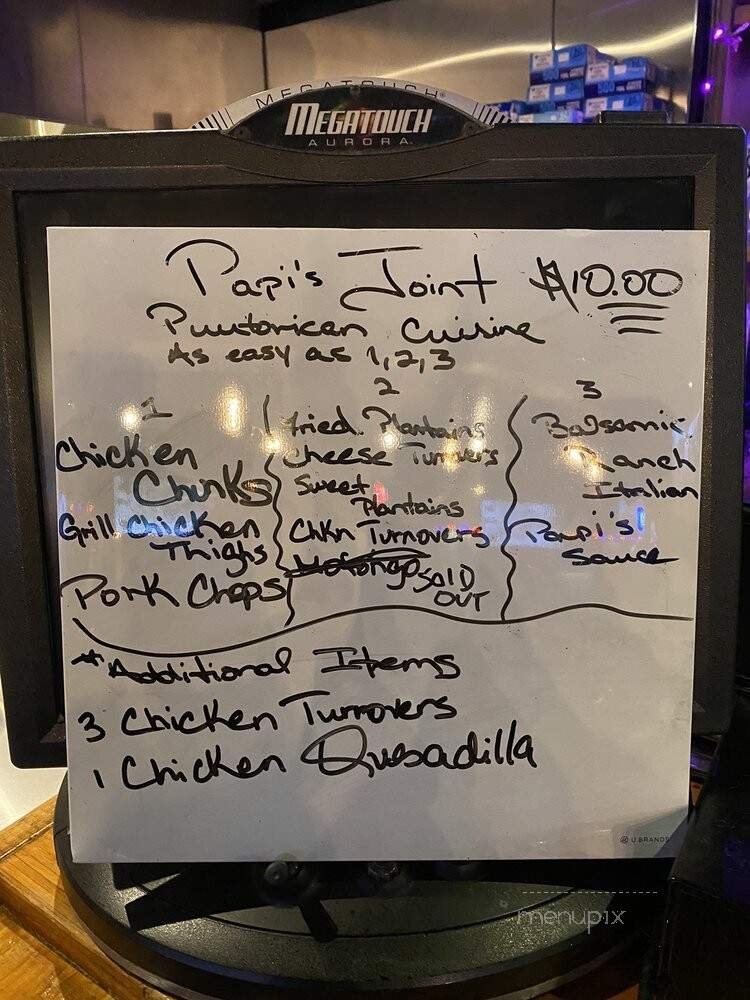 MEGATOUCH
MEGATOUCH
AURORA
Papi's Joint $10.00
Puertorican Cuisine
As easy as 1,2,3
1
Chicken
Chunks
Grill Chicken
Thighs
Pork Chops
2
Fried Plantains
Cheese Turnovers
Sweet
Plantains
Chkn Turnovers
Mofongo SOLD
OUT
3
Balsamic
Ranch
Italian
Papi's
Sauce
*Additional Items
3 Chicken Turnovers
1 Chicken Quesadilla
U BRANDS
menupix